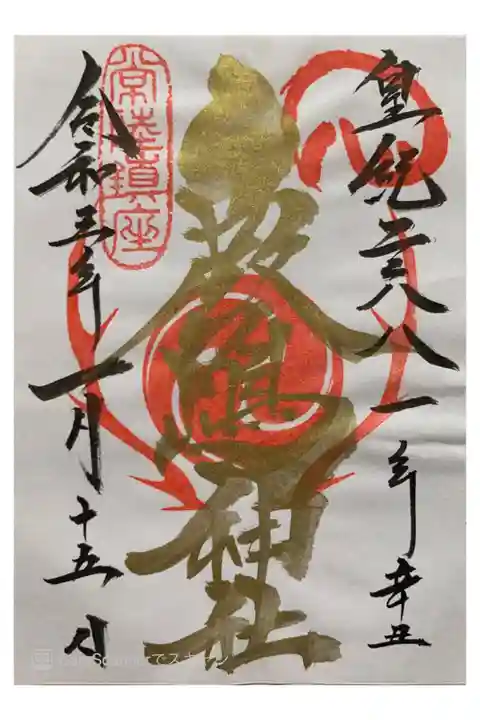 皇紀二六八一年辛丑
神社
常陸鎮座
令和三年一月十五日
CamScannerでスキャン